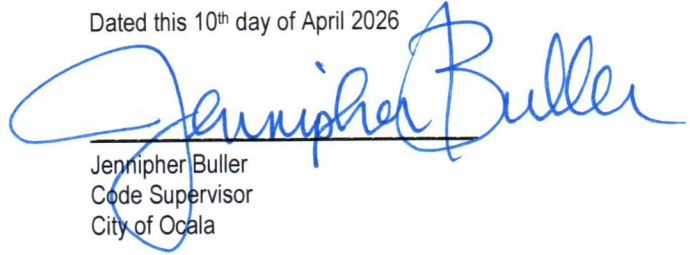 Dated this 10th day of April 2026
Jennipher Buller
Jennipher Buller
Code Supervisor
City of Ocala